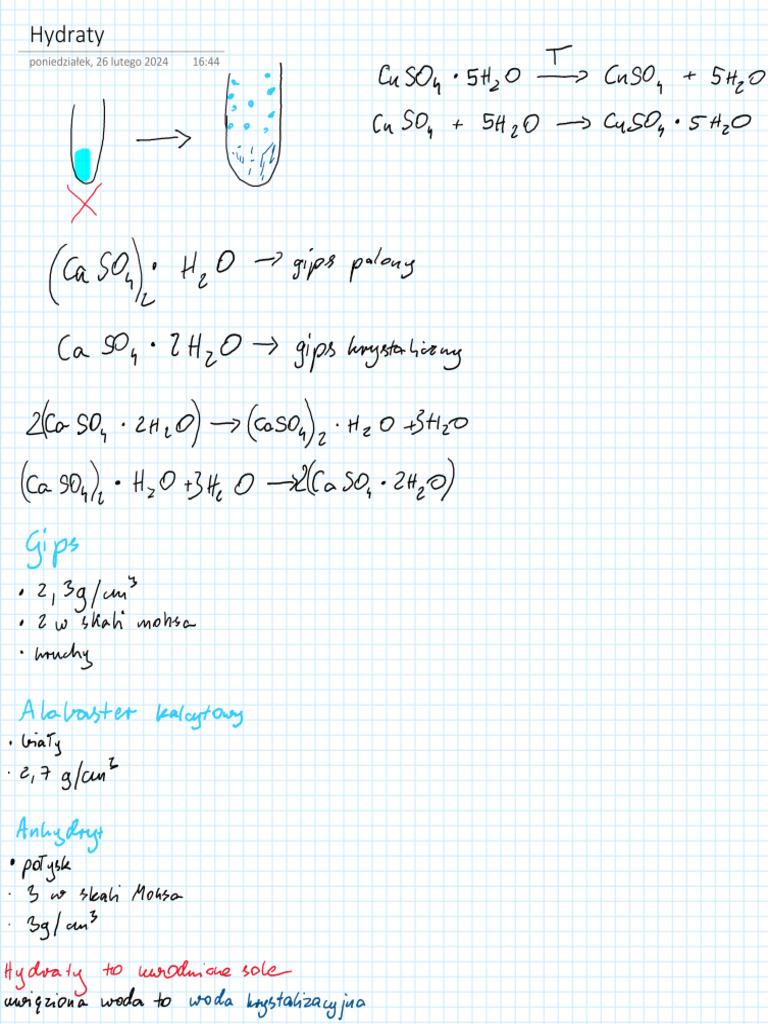 Hydraty
poniedziałek, 26 lutego 2024 16:44
CuSO₄ · 5H₂O —T→ CuSO₄ + 5H₂O
CuSO₄ + 5H₂O → CuSO₄ · 5H₂O
(CaSO₄)₂ · H₂O → gips palony
CaSO₄ · 2H₂O → gips krystaliczny
2(CaSO₄ · 2H₂O) → (CaSO₄)₂ · H₂O + 3H₂O
(CaSO₄)₂ · H₂O + 3H₂O → 2(CaSO₄ · 2H₂O)
Gips
• 2,3g/cm³
• 2 w skali mohsa
• kruchy
Alabaster kalcytowy
• biały
• 2,7 g/cm³
Anhydryt
• połysk
• 3 w skali Mohsa
• 3g/cm³
Hydraty to uwodnione sole
uwięziona woda to woda krystalizacyjna